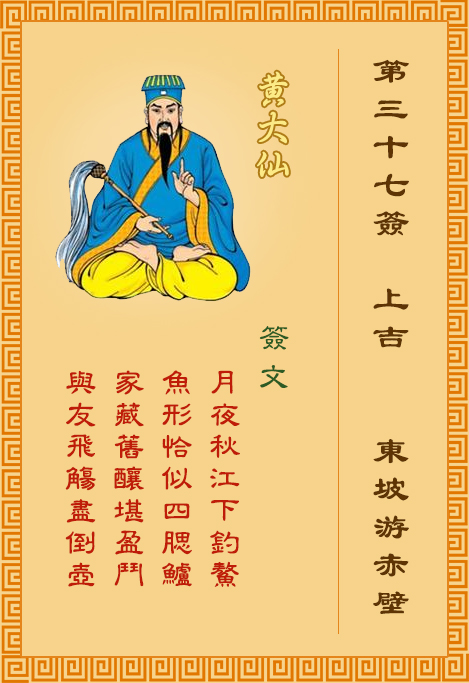 第三十七簽 上吉 東坡游赤壁
黄大仙
簽文
月夜秋江下釣鰲
魚形恰似四腮鱸
家藏舊釀堪盈鬥
與友飛觴盡倒壺